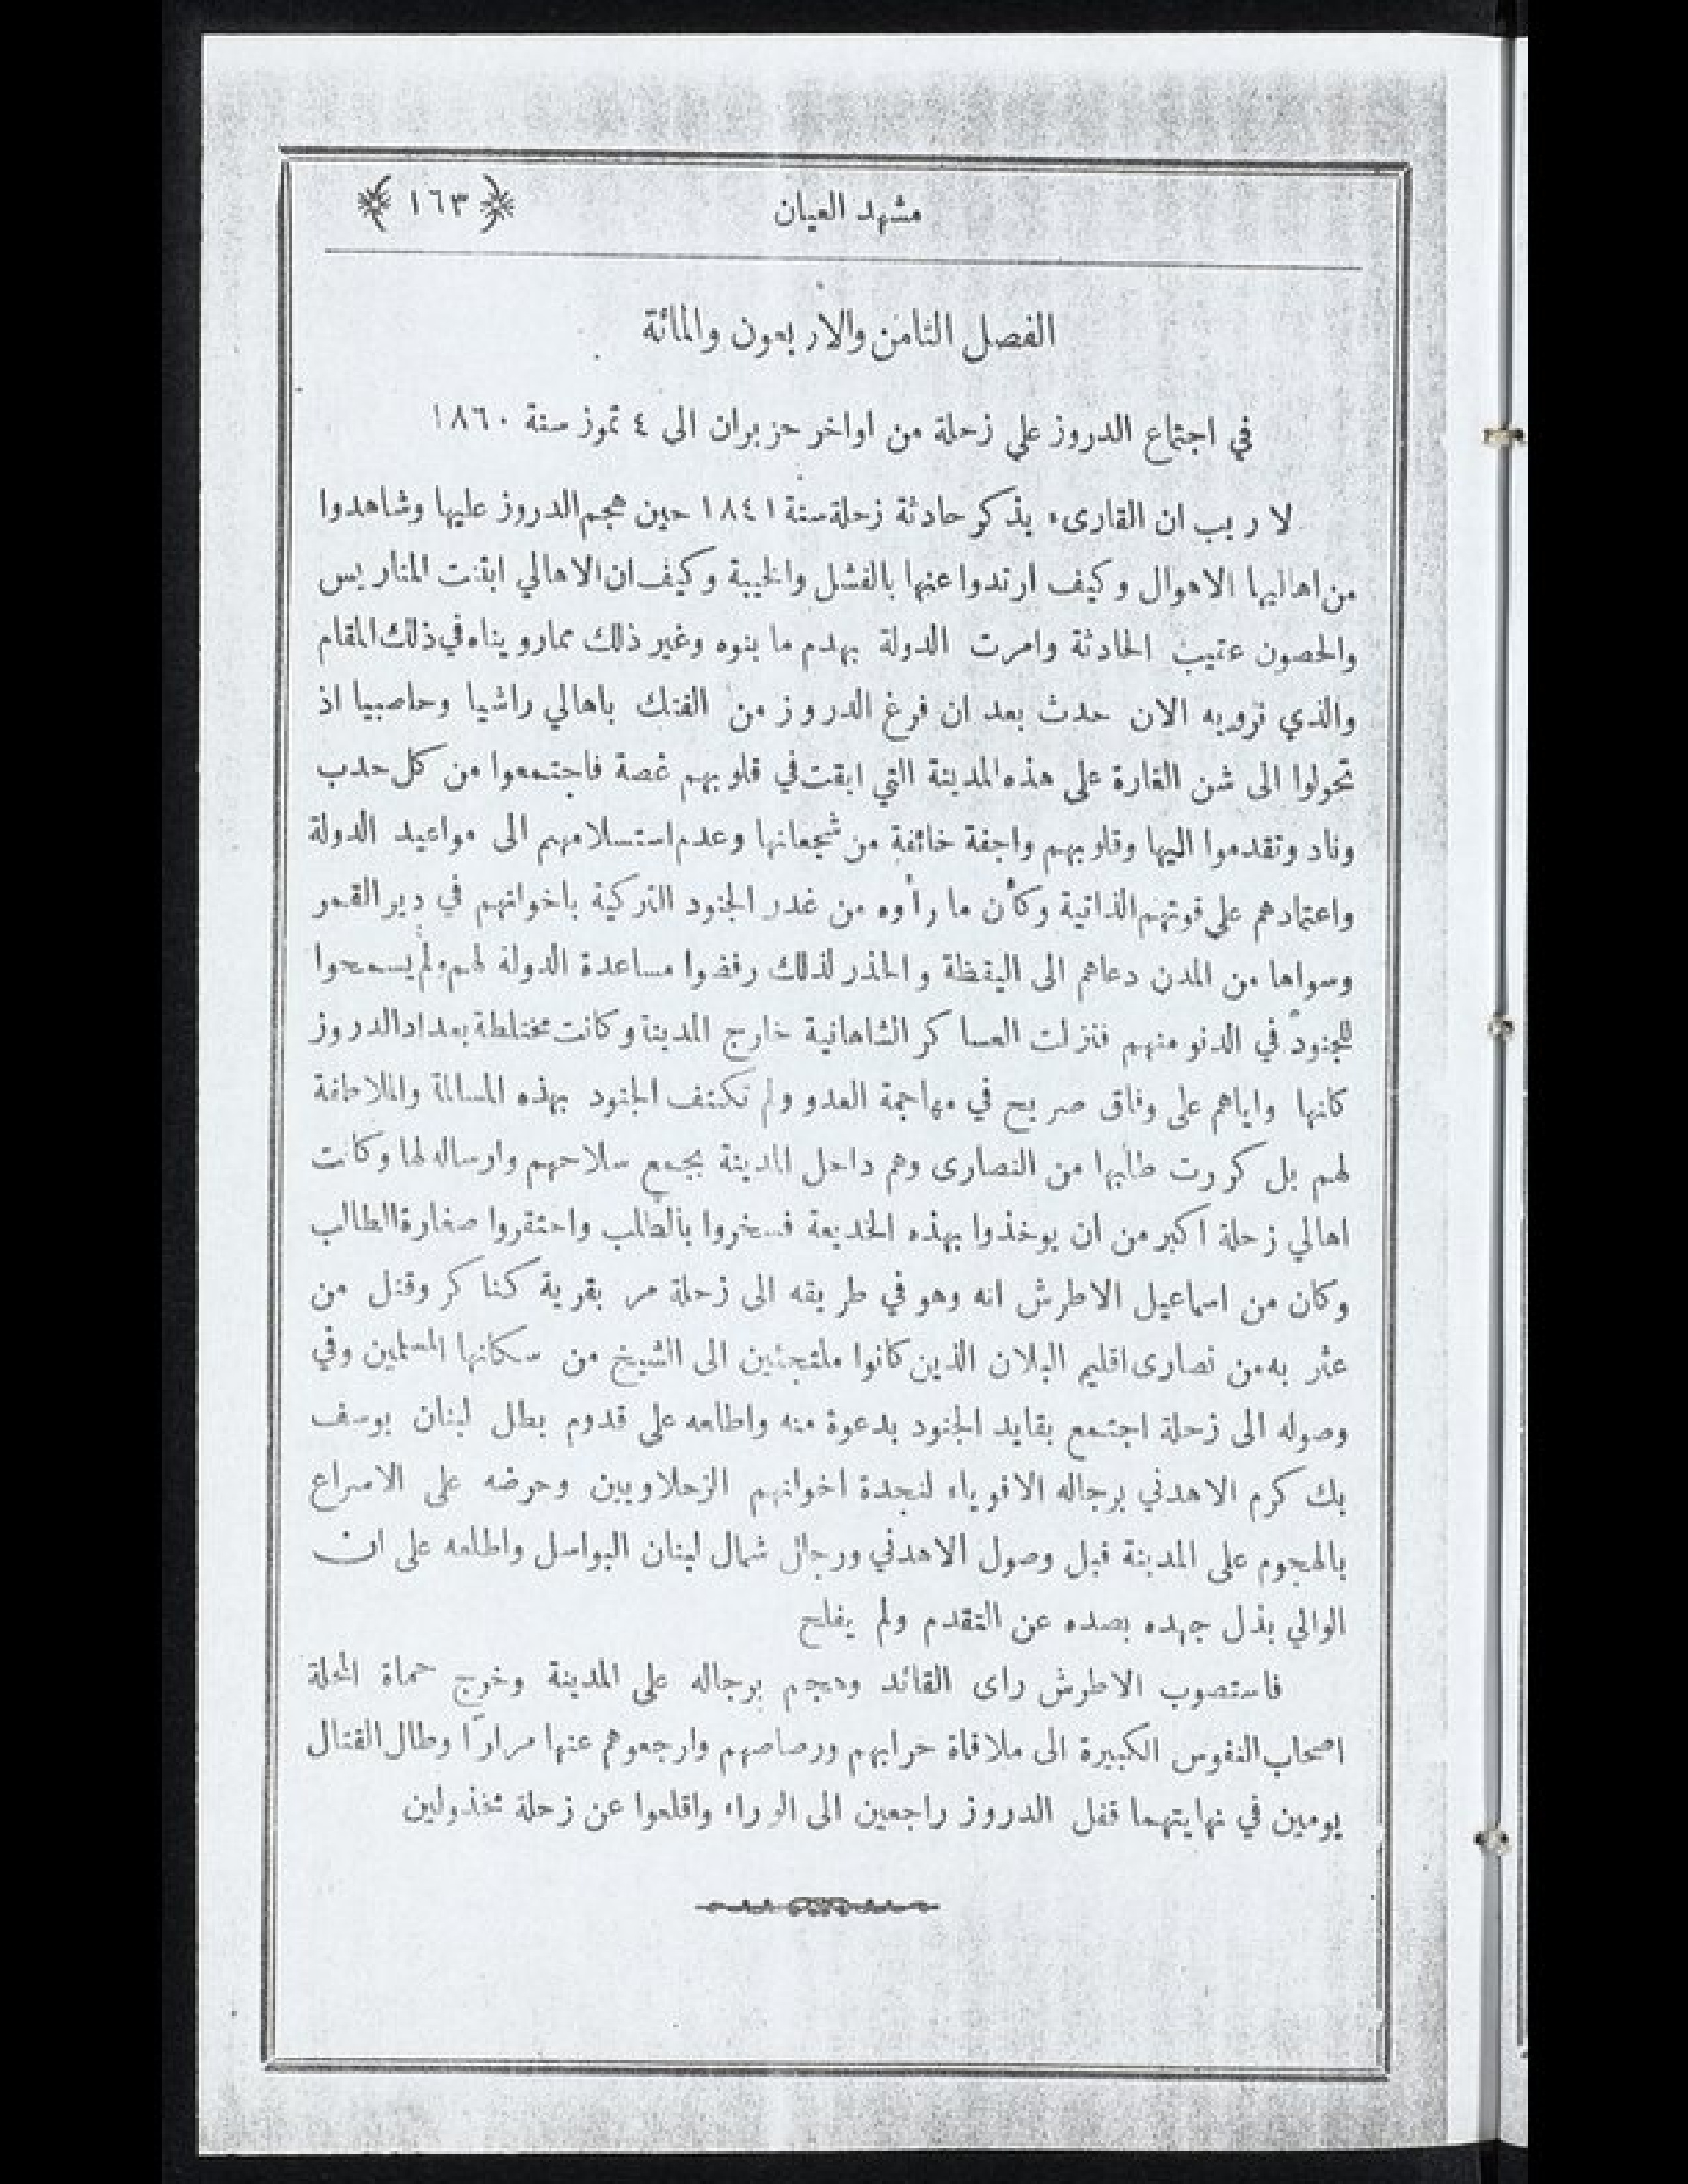 مشهد العيان
﴿ ١٦٣ ﴾
الفصل الثامن والاربعون والمائة
في اجتماع الدروز على زحلة من اواخر حزيران الى ٤ تموز سنة ١٨٦٠
لا ريب ان القارىء يذكر حادثة زحلة سنة ١٨٤١ حين هجم الدروز عليها وشاهدوا
من اهاليها الاهوال وكيف ارتدوا عنها بالفشل والخيبة وكيف ان الاهالي ابقت المتاريس
والحصون عقيب الحادثة وامرت الدولة بهدم ما بنوه وغير ذلك مما رويناه في ذلك المقام
والذي نرويه الان حدث بعد ان فرغ الدروز من الفتك باهالي راشيا وحاصبيا اذ
تحولوا الى شن الغارة على هذه المدينة التي ابقت في قلوبهم غصة فاجتمعوا من كل حدب
وناد وتقدموا اليها وقلوبهم واجفة خائفة من شجعانها وعدم استسلامهم الى مواعيد الدولة
واعتمادهم على قوتهم الذاتية وكأن ما رأوه من غدر الجنود التركية باخوانهم في دير القمر
وسواها من المدن دعاهم الى اليقظة والحذر لذلك رفضوا مساعدة الدولة لهم ولم يسمحوا
للجنود في الدنو منهم فنزلت العساكر الشاهانية خارج المدينة وكانت مختلطة بعداد الدروز
كانها واياهم على وفاق صريح في مهاجمة العدو ولم تكتف الجنود بهذه المسالمة والملاطفة
لهم بل كررت طلبها من النصارى وهم داخل المدينة بجمع سلاحهم وارساله لها وكانت
اهالي زحلة اكبر من ان يوخذوا بهذه الخديعة فسخروا بالطلب واحتقروا صغارة الطالب
وكان من اسماعيل الاطرش انه وهو في طريقه الى زحلة مر بقرية كناكر وقتل من
عثر به من نصارى اقليم البلان الذين كانوا ملتجئين الى الشيخ من سكانها المسلمين وفي
وصوله الى زحلة اجتمع بقايد الجنود بدعوة منه واطلعه على قدوم بطل لبنان يوسف
بك كرم الاهدني برجاله الاقوياء لنجدة اخوانهم الزحلاويين وحرضه على الاسراع
بالهجوم على المدينة قبل وصول الاهدني ورجال شمال لبنان البواسل واطلعه على ان
الوالي بذل جهده بصده عن التقدم ولم يفلح
فاستصوب الاطرش راى القائد وهجم برجاله على المدينة وخرج حماة المحلة
اصحاب النفوس الكبيرة الى ملاقاة حرابهم ورصاصهم وارجعوهم عنها مرارًا وطال القتال
يومين في نهايتهما قفل الدروز راجعين الى الوراء واقلعوا عن زحلة مخذولين